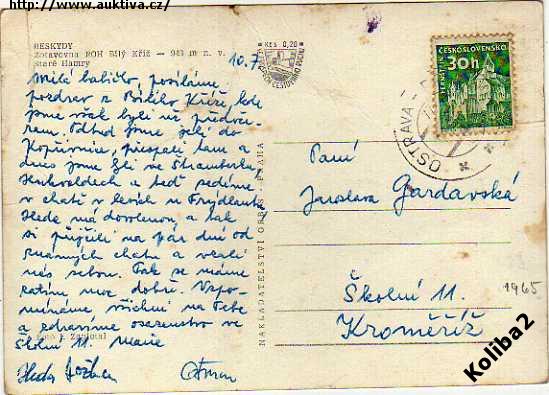 http://www.auktiva.cz/
BESKYDY
Zotavovna ROH Bílý Kříž — 943 m n. v.
Staré Hamry
Kčs 0,20
10.7
Milá babičko, posíláme
pozdrav z Bílého Kříže, kde
jsme však byli už předvče-
rem. Odtud jsme jeli do
Kopřivnice, přespali tam a
dnes jsme byli ve Štramberku,
Hukvaldech a teď sedíme
v chatě v lesích u Frýdlantu
Heda má dovolenou a tak
si půjčili na pár dní od
známých chatu a vzali
nás sebou. Tak se máme
zatím moc dobře. Vzpo-
mínáme všichni na Tebe
a zdravíme osazenstvo ve
Školní 11. Marie
Heda
NAKLADATELSTVÍ ORBIS - PRAHA
ČESKOSLOVENSKO
30h
PERNŠTEJN
OSTRAVA
Paní
Jaroslava Gardavská
Školní 11.
Kroměříž
1965
Koliba2